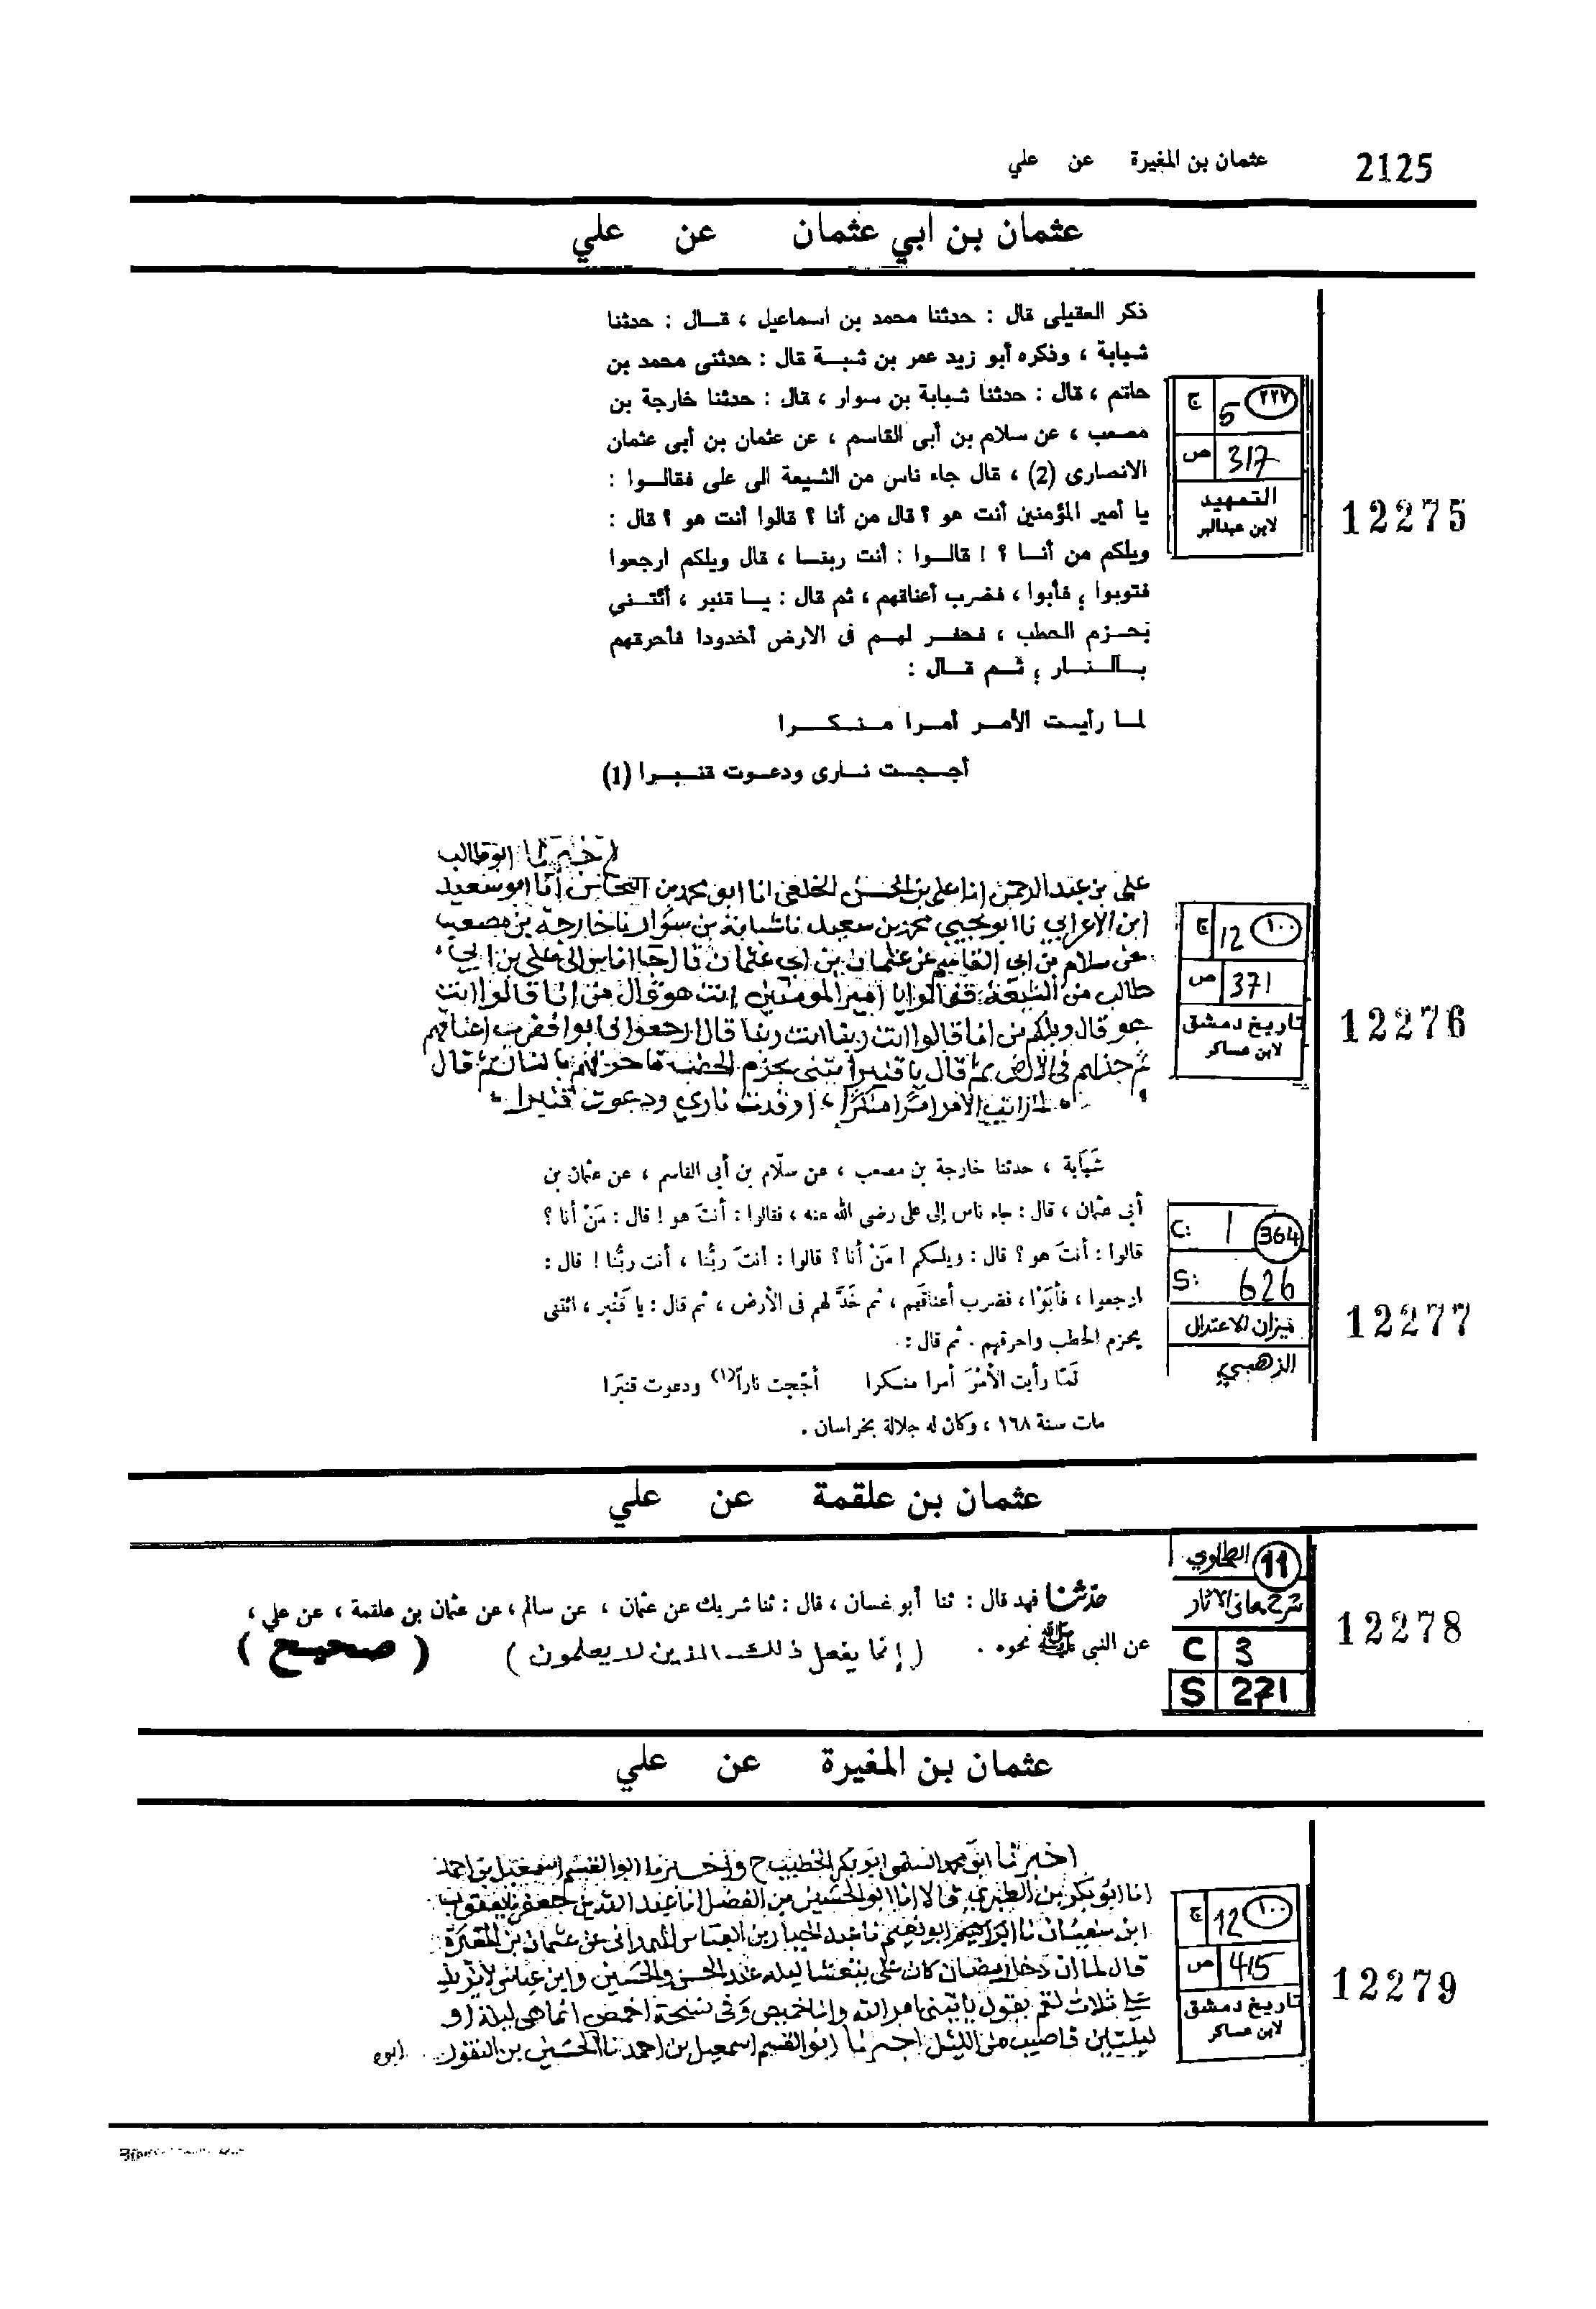 2125 عثمان بن المغيرة عن علي
عثمان بن ابي عثمان عن علي
ذكر العقيلى قال : حدثنا محمد بن اسماعيل ، قال : حدثنا
شبابة ، وذكره أبو زيد عمر بن شبة قال : حدثنى محمد بن
حاتم ، قال : حدثنا شبابة بن سوار ، قال : حدثنا خارجة بن
مصعب ، عن سلام بن أبى القاسم ، عن عثمان بن أبى عثمان
الانصارى (2) ، قال جاء ناس من الشيعة الى على فقالوا :
يا أمير المؤمنين أنت هو ؟ قال من أنا ؟ قالوا أنت هو ؟ قال :
ويلكم من أنا ؟ ! قالوا : أنت ربنا ، قال ويلكم ارجعوا
فتوبوا ؛ فأبوا ، فضرب أعناقهم ، ثم قال : يا قنبر ، أئتنى
بحزم الحطب ، فحفر لهم فى الارض أخدودا فأحرقهم
بالنار ؛ ثم قال :
لما رأيت الأمر أمرا منكرا
أججت نارى ودعوت قنبرا (1)
ج 5 ٢٢٧
ص 317
التمهيد
لابن عبدالبر
12275
اخبرنا ابو طالب
علي بن عبد الرحمن انا علي بن الحسن الخلعي انا ابو محمد بن النحاس أنا ابو سعيد
ابن الاعرابي نا ابو يحيى محمد بن سعيد نا شبابة بن سوار نا خارجة بن مصعب
عن سلام بن ابي القاسم عن عثمان بن ابي عثمان قال جا اناس الى علي بن ابي
طالب من الشيعة فقالوا يا امير المومنين انت هو قال من انا قالوا انت
هو قال ويلكم من انا قالوا انت ربنا انت ربنا قال ارجعوا فابوا فضرب اعناقهم
ثم خد لهم في الارض ثم قال يا قنبر ايتني بحزم الحطب فاحرقهم بالنار ثم قال
لما رايت الامر امرا منكرا اوقدت ناري ودعوت قنبرا
ج 12 ١٠٠
ص 371
تاريخ دمشق
لابن عساكر
12276
شَبَابة ، حدثنا خارجة بن مصعب ، عن سلّام بن أبي القاسم ، عن عثمان بن
أبى عثمان ، قال : جاء ناس إلى على رضي الله عنه ، فقالوا : أنتَ هو ! قال : مَنْ أنا ؟
قالوا : أنتَ هو ؟ قال : ويلكم ! مَنْ أنا ؟ قالوا : أنتَ ربُّنا ، أنت ربُّنا ! قال :
ارجعوا ، فأبَوْا ، فضرب أعناقَهم ، ثم خَدَّ لهم فى الأرض ، ثم قال : يا قَنْبر ، ائتنى
بحزم الحطب واحرقهم . ثم قال :
لَمّا رأيت الأمْرَ أمرا منكرا أجّجت ناراً (١) ودعوت قنبَرَا
مات سنة ١٦٨ ، وكان له جلالة بخراسان .
C: 1 364
S: 626
ميزان الاعتدال
الذهبي
12277
عثمان بن علقمة عن علي
حدثنا فهد قال : ثنا أبو غسان ، قال : ثنا شريك عن عثمان ، عن سالم ، عن عثمان بن علقمة ، عن علي ،
عن النبي ﷺ نحوه . ( إنما يفعل ذلك الذين لا يعلمون ) ( صحيح )
الطحاوي 11
شرح معاني الآثار
C 3
S 271
12278
عثمان بن المغيرة عن علي
اخبرنا ابو محمد السلمي ابو بكر الخطيب ح واخبرنا ابو القسم اسمعيل بن احمد
انا ابو بكر بن الطبري قالا انا ابو الحسين بن الفضل انا عبد الله بن جعفر نا يعقوب
ابن سفيان نا ابو نعيم نا عبد الجبار بن العباس الهمداني عن عثمان بن المغيرة
قال لما ان دخل رمضان كان علي يتعشا ليله عند الحسن والحسين وابن عباس لا يزيد
علي ثلاث لقم يقول ياتيني امر الله وانا خميص وفي نسخة اخمص انما هي ليلة او
ليلتين فاصيب من الليل اخبرنا ابو القسم اسمعيل بن احمد نا الحسين بن النقور ابوه
ج 12 ١٠٠
ص 415
تاريخ دمشق
لابن عساكر
12279